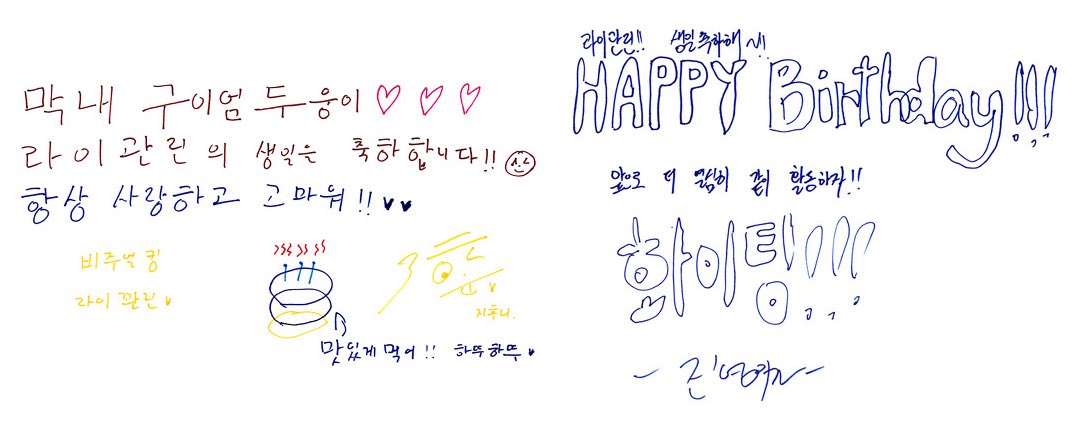 막내 구이엄두웅이 ♡ ♡ ♡
라이관린의 생일은 축하합니다!!
항상 사랑하고 고마워!! ♥♥
비주얼 킹
라이 꽌린 ♥
훈
지후니.
맛있게 먹어!! 하뚜하뚜 ♥
라이관린!! 생일축하해~!!
HAPPY Birthday!!!
앞으로 더 열심히 활동하자!!
화이팅!!!